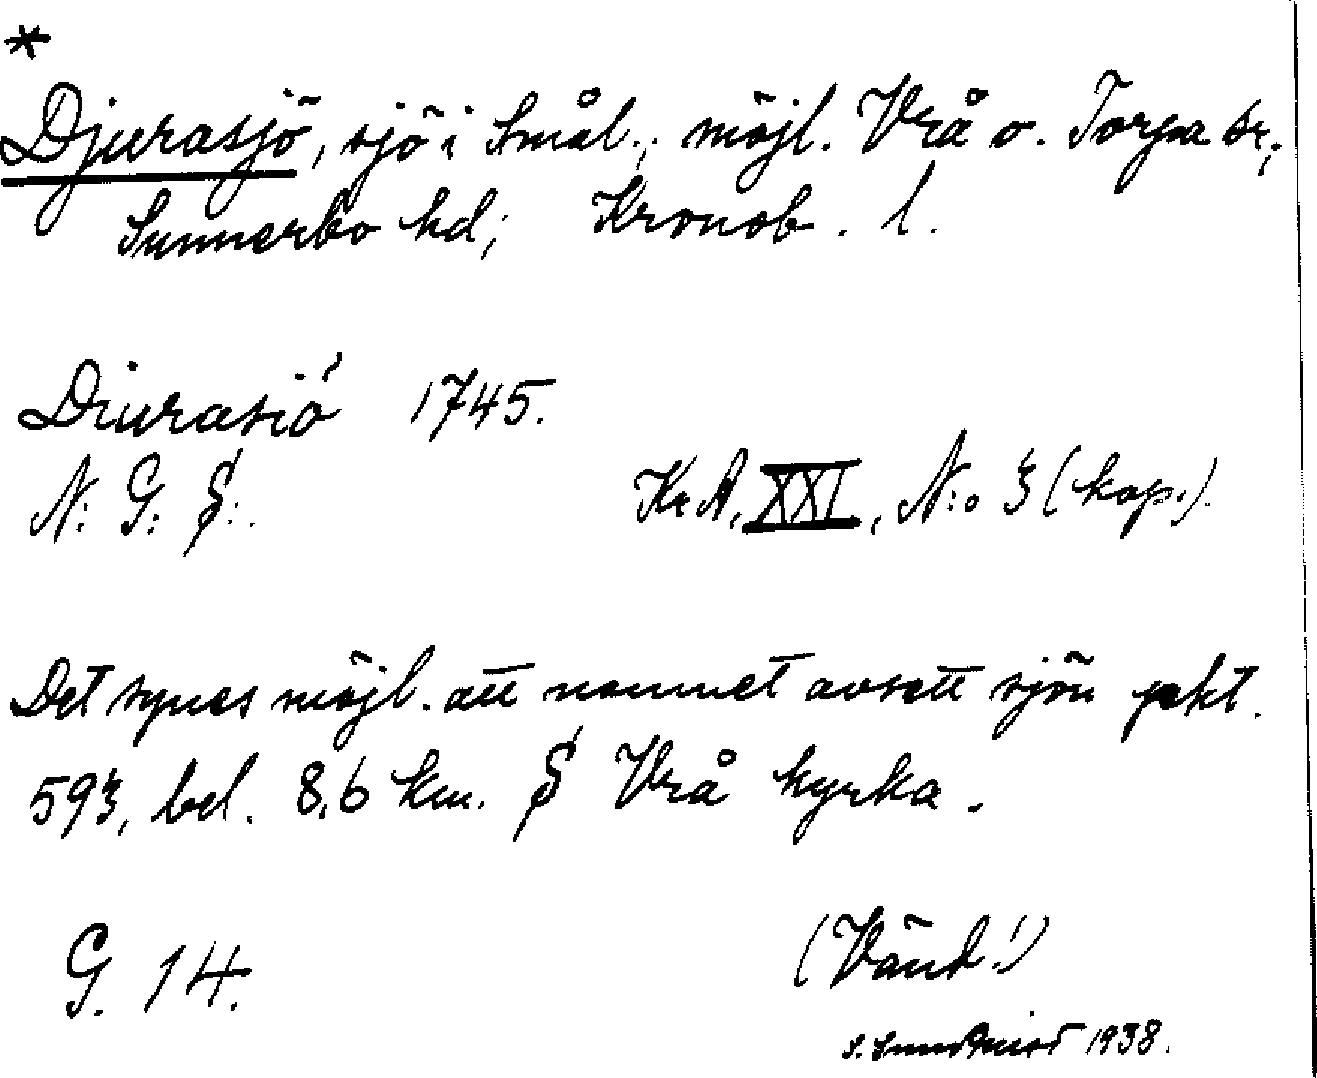 *
Djurasjö, sjö i Smål., möjl. Vrå o. Torpa sr,
Sunnerbo hd; Kronob. l.
Diurasiö 1745.
N: G: S:.
Kr.A. XXI, N:o 3 (kop.).
Det synes möjl. att namnet avsett sjön pkt.
593, bel. 8,6 km. S Vrå kyrka.
G. 14.
(Vänd!)
S. 1938.